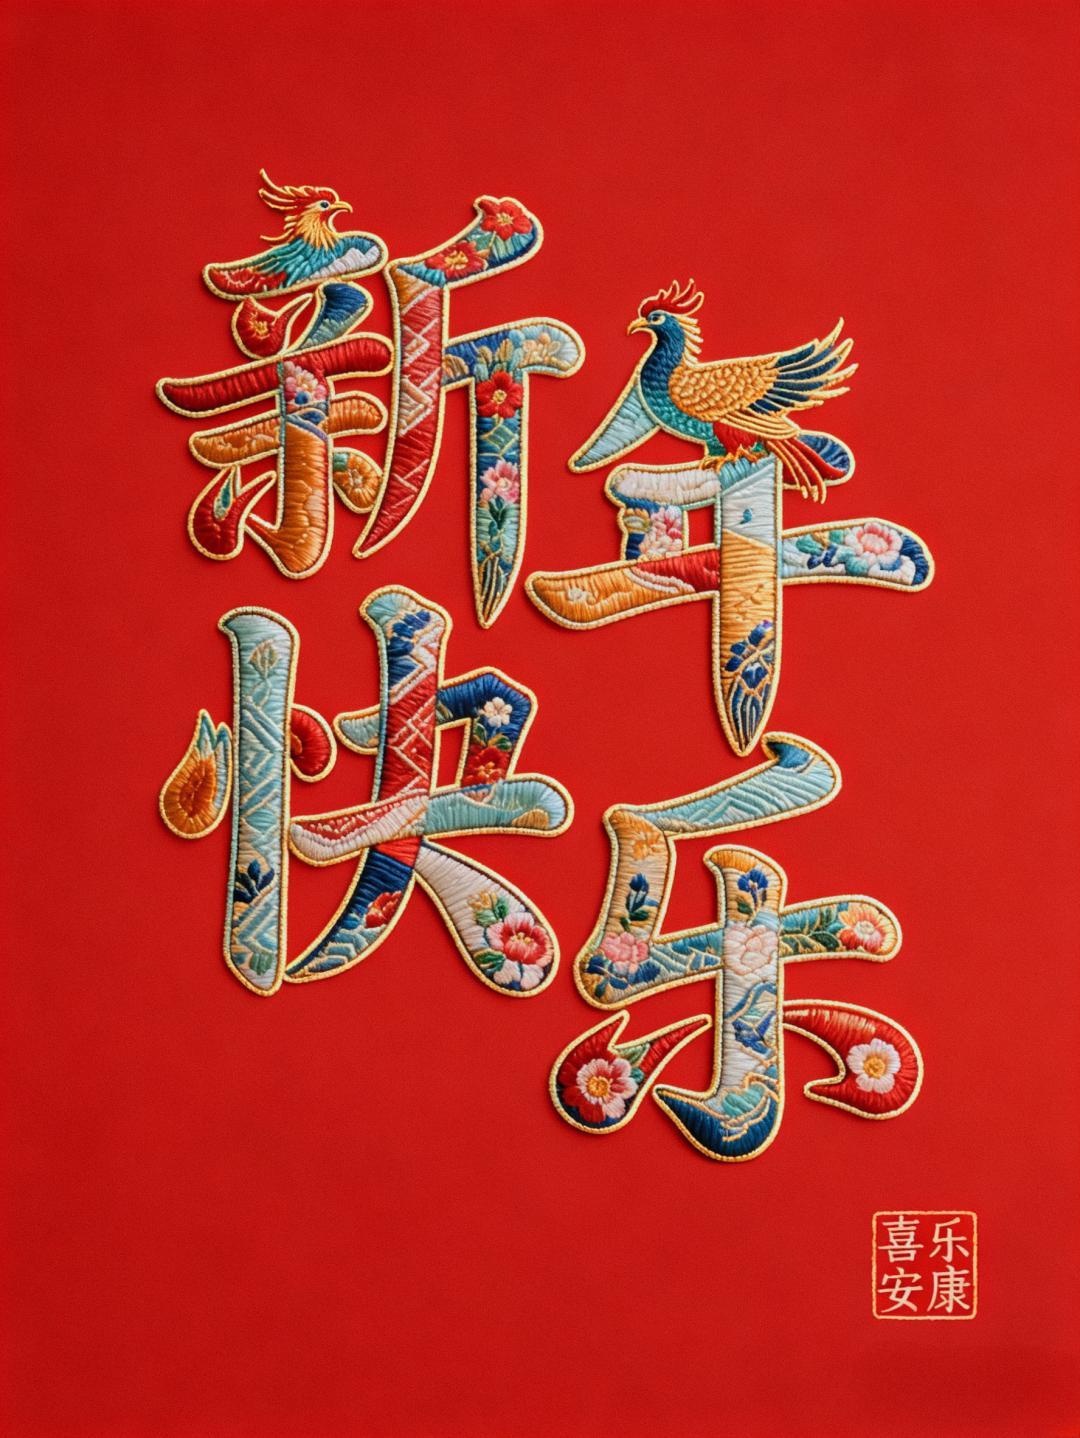 新年
快乐
喜乐
安康